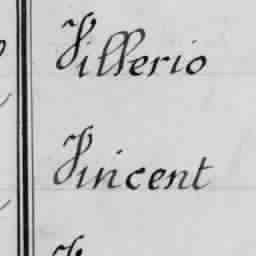 Villerio
Vincent